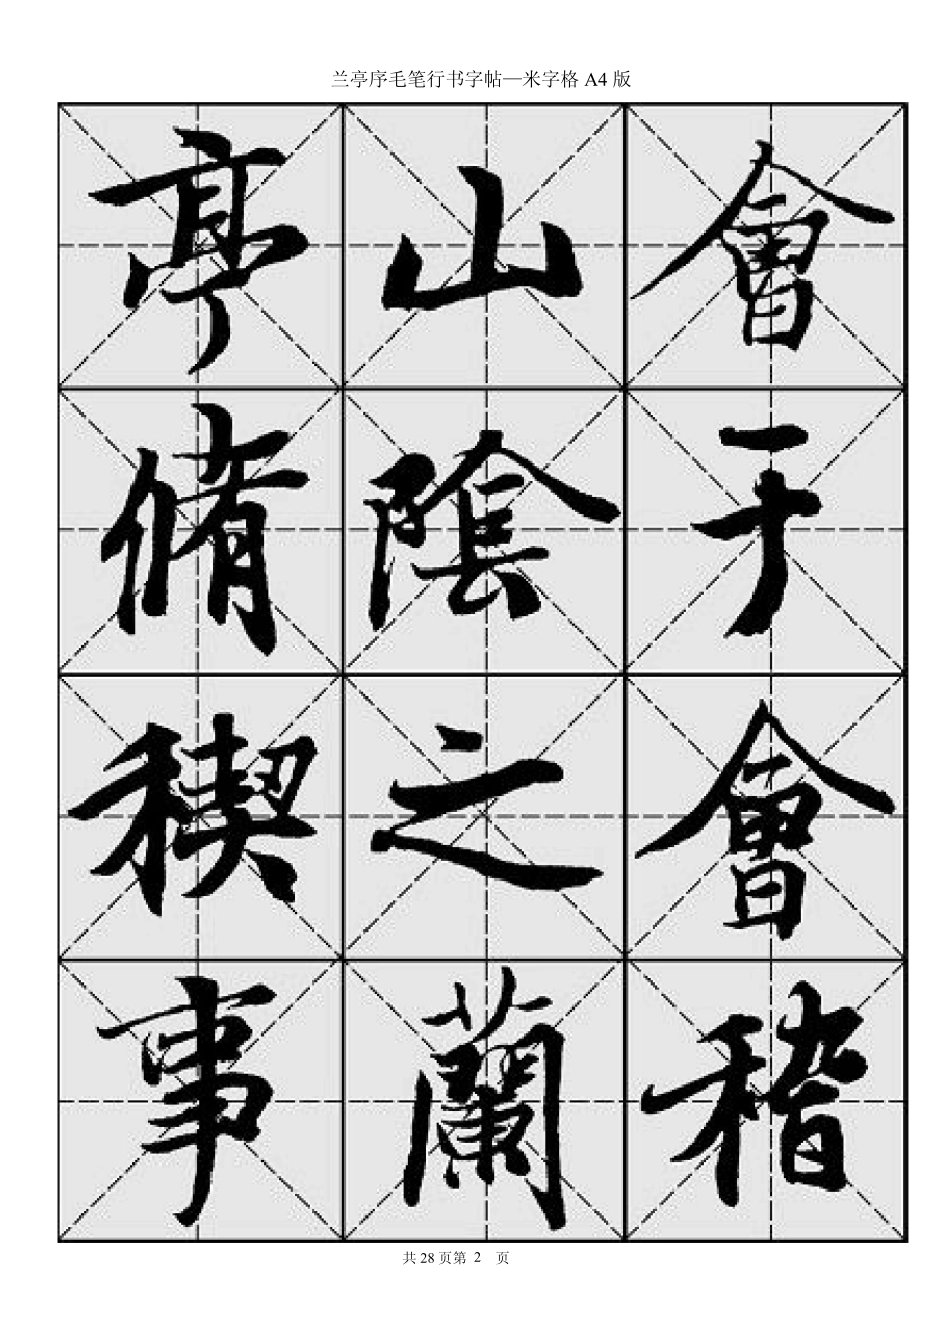 兰亭序毛笔行书字帖—米字格 A4 版
會于會稽
山陰之蘭
亭脩稧事
共 28 页第 2 页